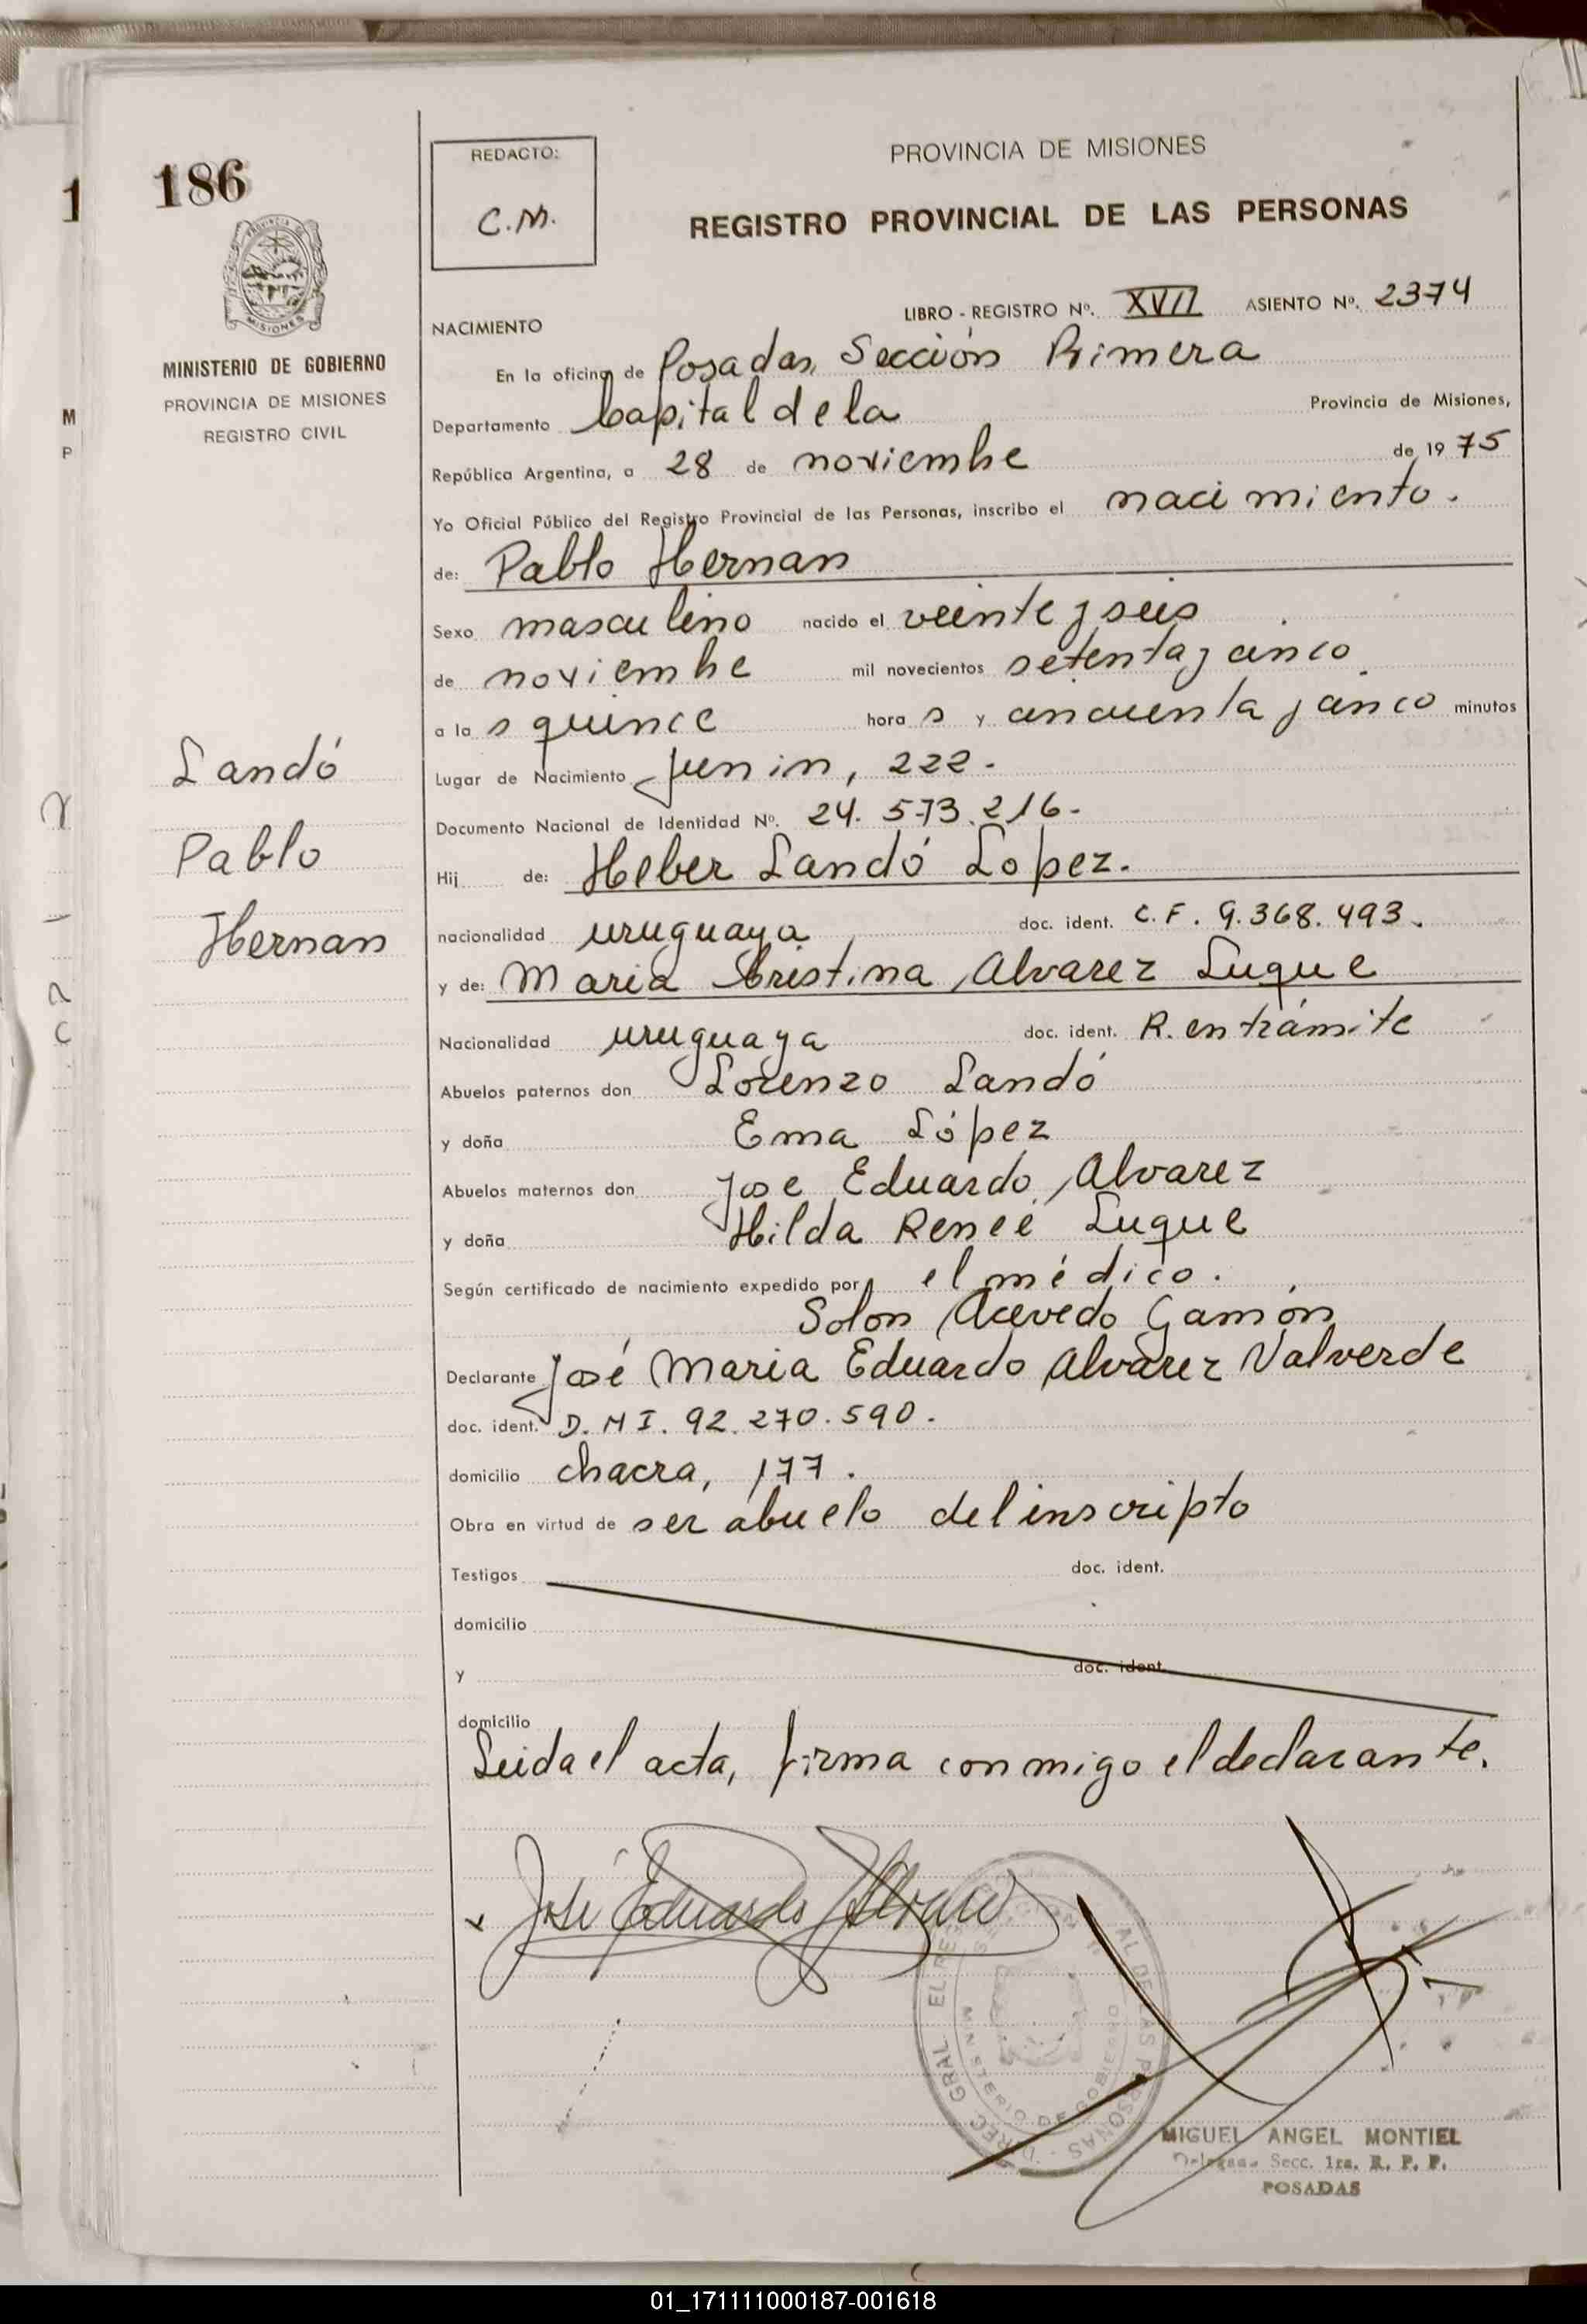 186
1
REDACTO:
C.M.
PROVINCIA DE MISIONES
REGISTRO PROVINCIAL DE LAS PERSONAS
PROVINCIA
MISIONES
MINISTERIO DE GOBIERNO
PROVINCIA DE MISIONES
REGISTRO CIVIL
M
P
LIBRO - REGISTRO Nº. XVII ASIENTO Nº. 2374
NACIMIENTO
En la oficina de Posadas, Sección Primera
Departamento Capital de la Provincia de Misiones,
República Argentina, a 28 de noviembre de 1975
Yo Oficial Público del Registro Provincial de las Personas, inscribo el nacimiento.
de: Pablo Hernan
Sexo masculino nacido el veinte y seis
de noviembre mil novecientos setenta y cinco
a las quince horas y cincuenta y cinco minutos
Landó
Pablo
Hernan
Lugar de Nacimiento Junin, 222.-
Documento Nacional de Identidad Nº. 24.573.216-
Hij de: Heber Landó Lopez.
nacionalidad uruguaya, doc. ident. C.F. 9.368.493.
y de: Maria Cristina Alvarez Luque
Nacionalidad uruguaya doc. ident. R. en trámite
Abuelos paternos don Lorenzo Landó
y doña Ema López
Abuelos maternos don Jose Eduardo Alvarez
y doña Hilda Reneé Luque
Según certificado de nacimiento expedido por el médico.
Solon Acevedo Gamón
Declarante José Maria Eduardo Alvarez Valverde
doc. ident. D.N I. 92.270.590.
domicilio chacra, 177.
Obra en virtud de ser abuelo del inscripto
Testigos doc. ident.
domicilio
y doc. ident.
domicilio
Leida el acta, firma conmigo el declarante.
x José Eduardo Alvarez
MINISTERIO DE GOBIERNO
MIGUEL ANGEL MONTIEL
Secc. 1ra. R. P. P.
POSADAS
01_171111000187-001618